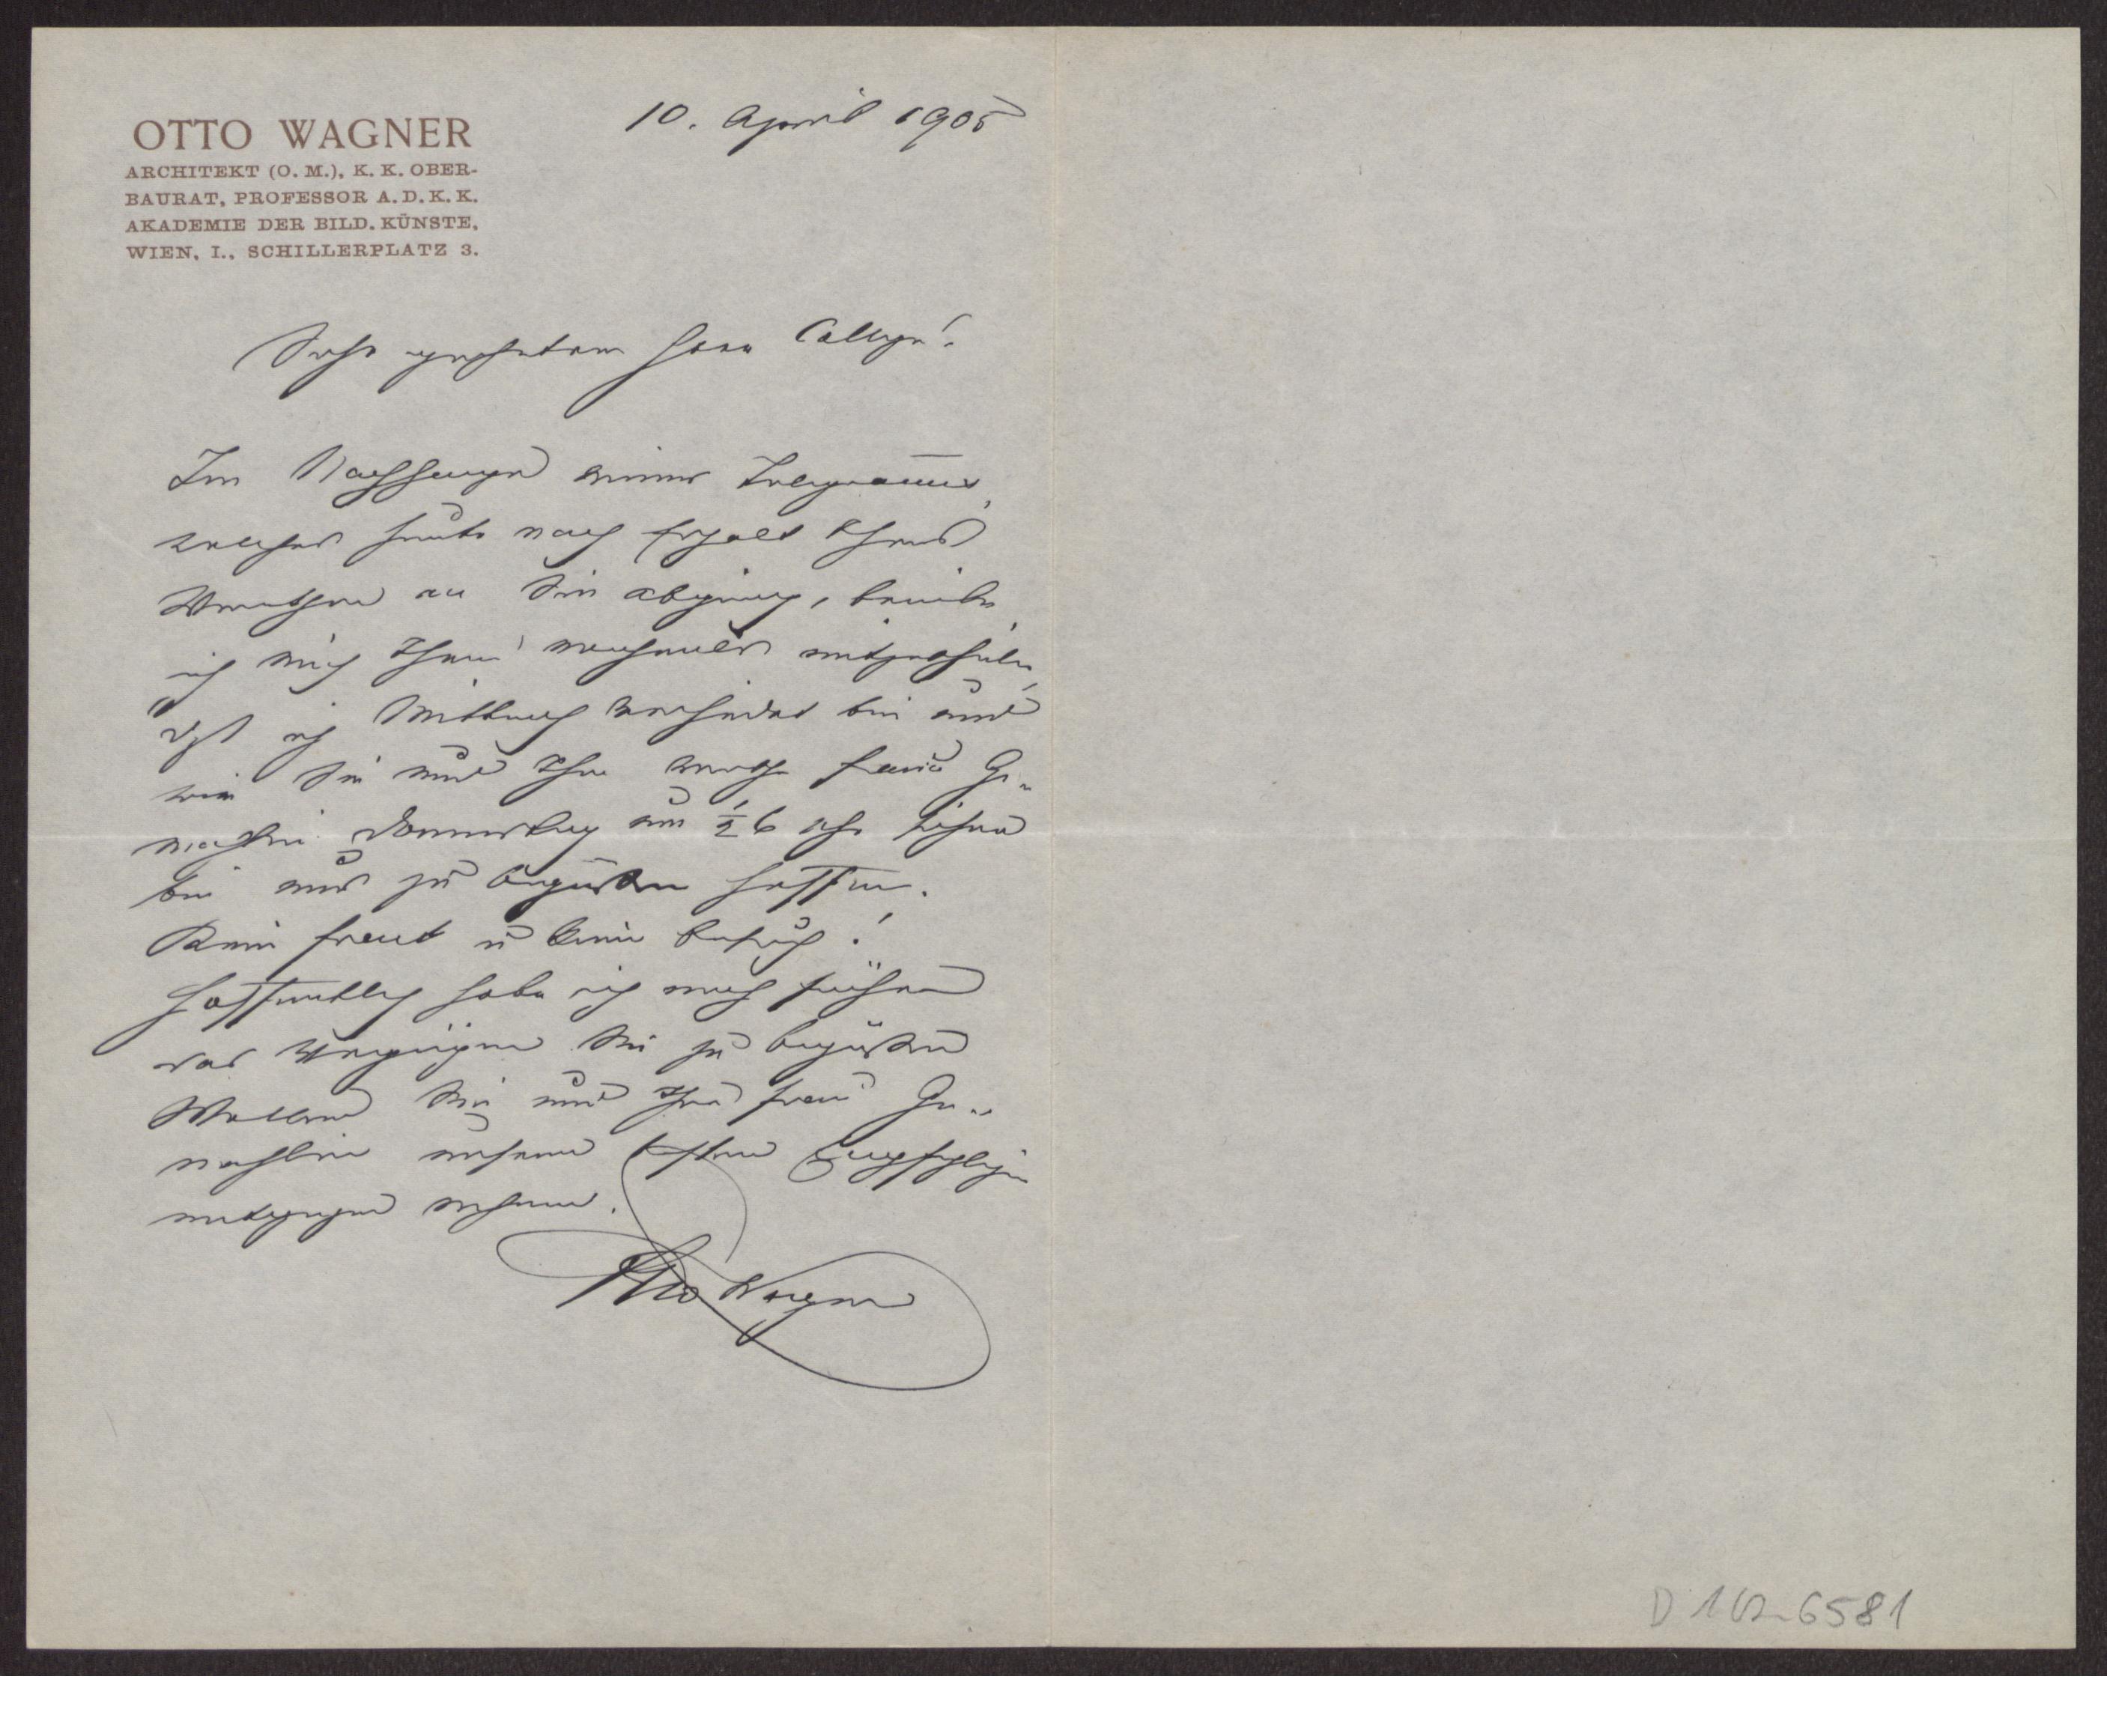 OTTO WAGNER
ARCHITEKT (O. M.), K. K. OBER-
BAURAT, PROFESSOR A. D. K. K.
AKADEMIE DER BILD. KÜNSTE,
WIEN, I., SCHILLERPLATZ 3.
10. April 1905
Sehr geehrter Herr College!
Im Nachhange meines Telegrammes,
welches heute nach Erhalt Ihres
Werthen an Sie abging, beeile
ich mich Ihnen nochmals mitzutheilen,
daß ich Mittwoch verhindert bin und
wir Sie und Ihre werthe Frau Ge-
mahlin Donnerstag um ½ 6 Uhr
bei uns zu begrüßen hoffen.
Kein Frack u kein
Hoffentlich habe ich noch früher
das Vergnügen Sie zu begrüßen
Wollen Sie und Ihre Frau Ge-
mahlin unsere besten Empfehlungen
entgegen nehmen.
Otto Wagner
D 102-6581